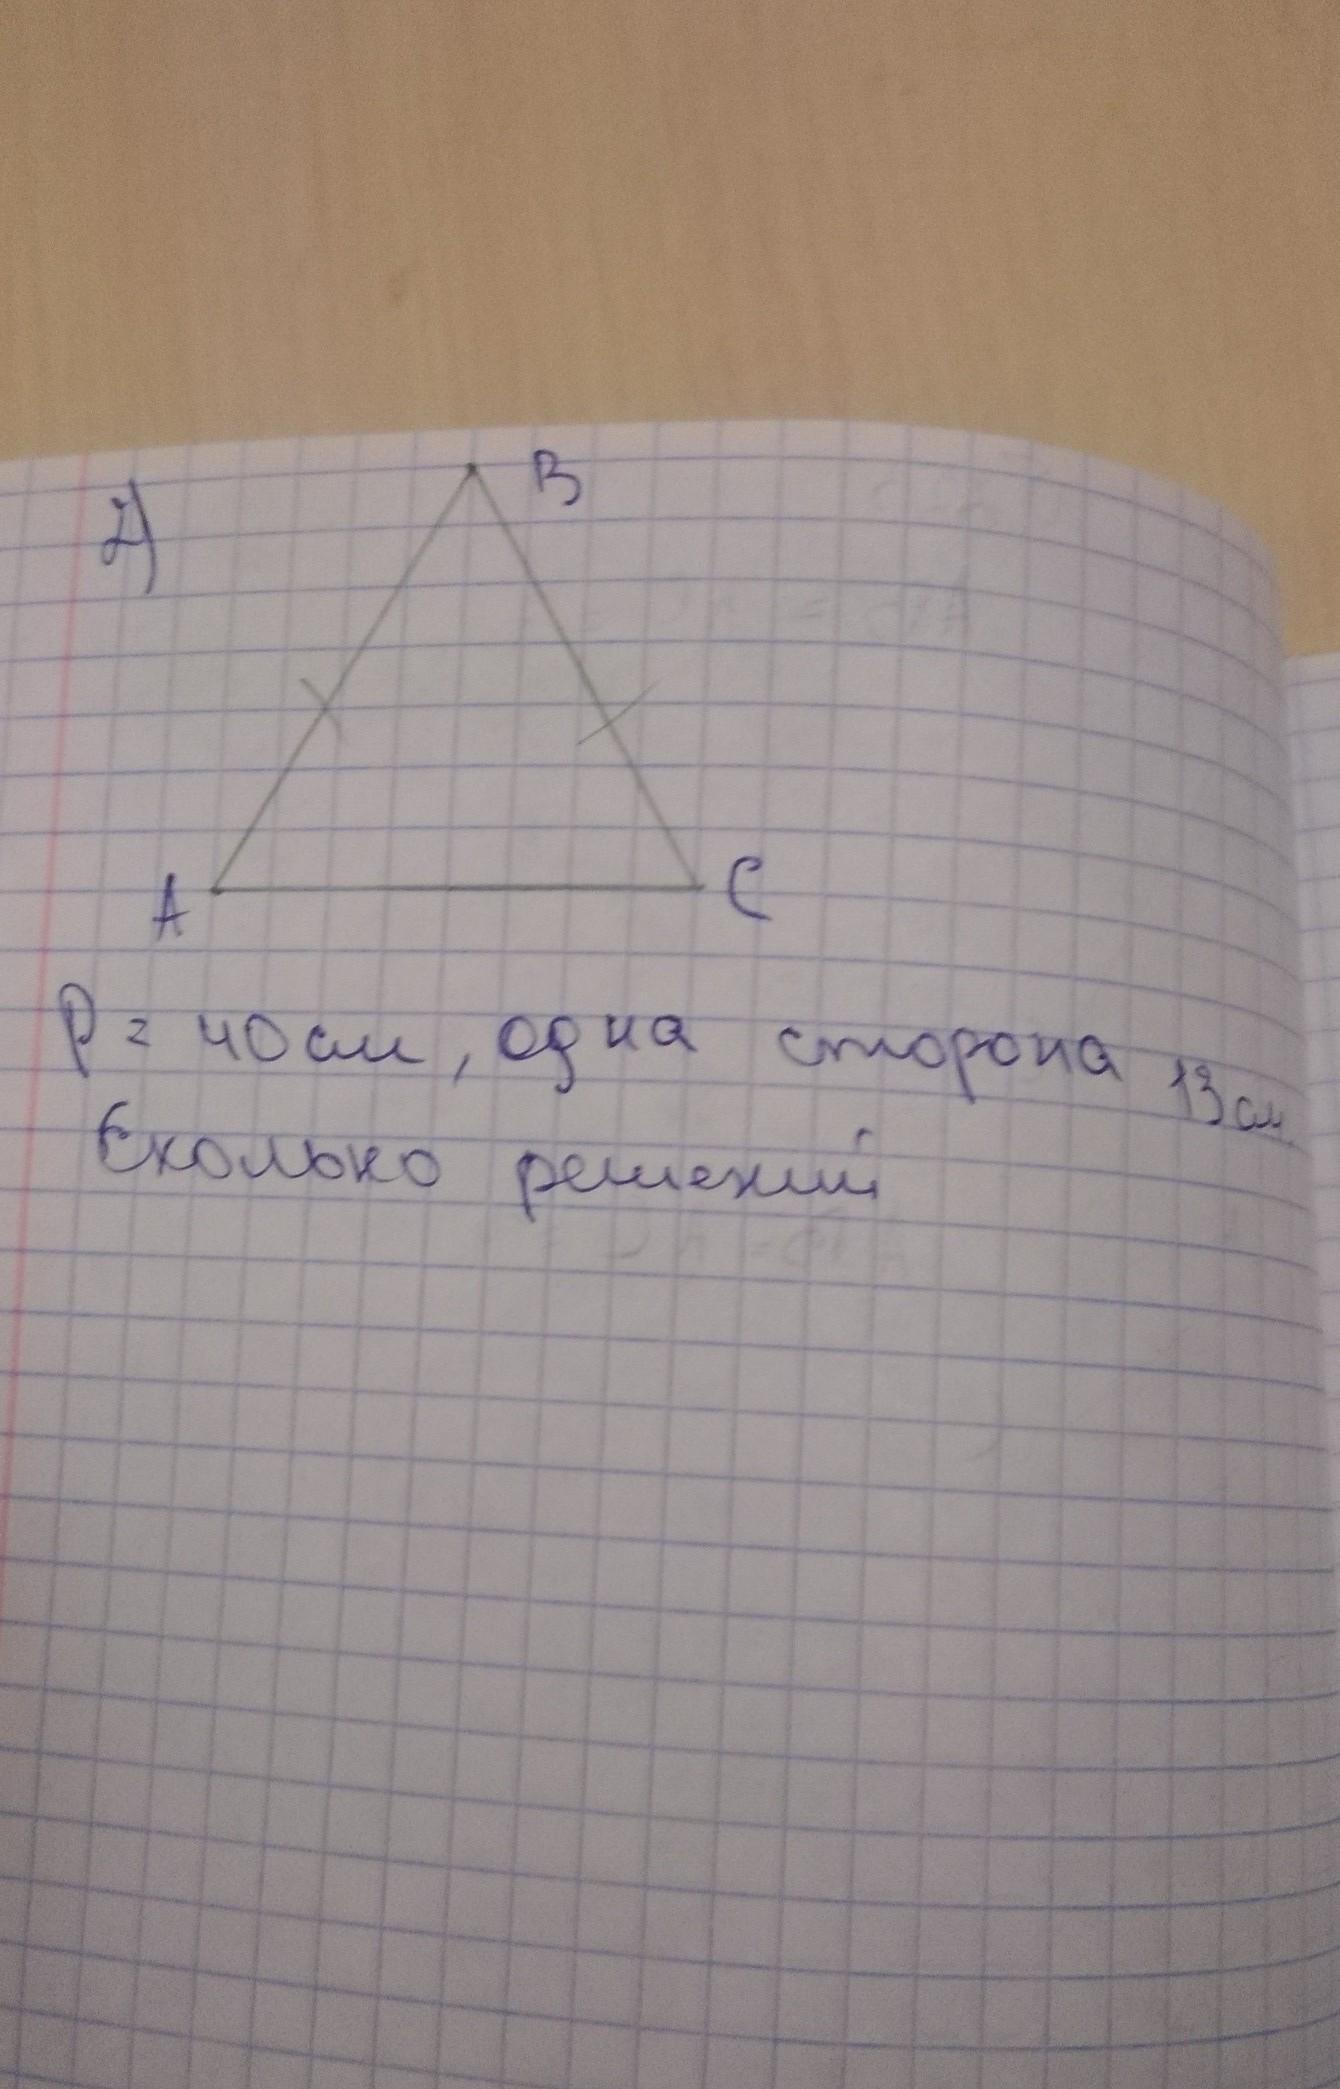 2)
B
A
C
P = 40 см, одна сторона 13 см
Сколько решений